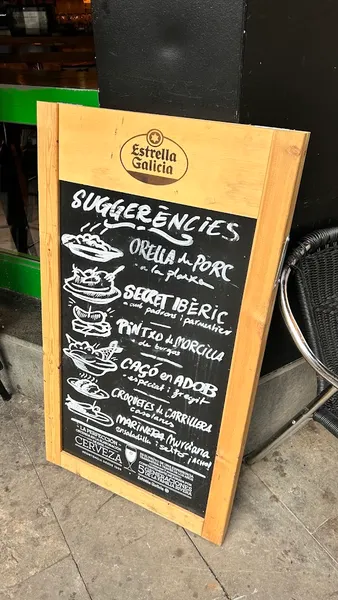 Estrella
Galicia
SUGGERÈNCIES
ORELLA de PORC
a la planxa
SECRET IBÈRIC
amb padrons i parmentier
PINTXO de MORCILLA
de burgos
CAÇÓ en ADOB
especiat i fregit
CROQUETES de CARRILLERA
casolanes
MARINERA Murciana
ensaladilla i seitó ¡ACHO!
LA
CERVEZA
GENERACIONES